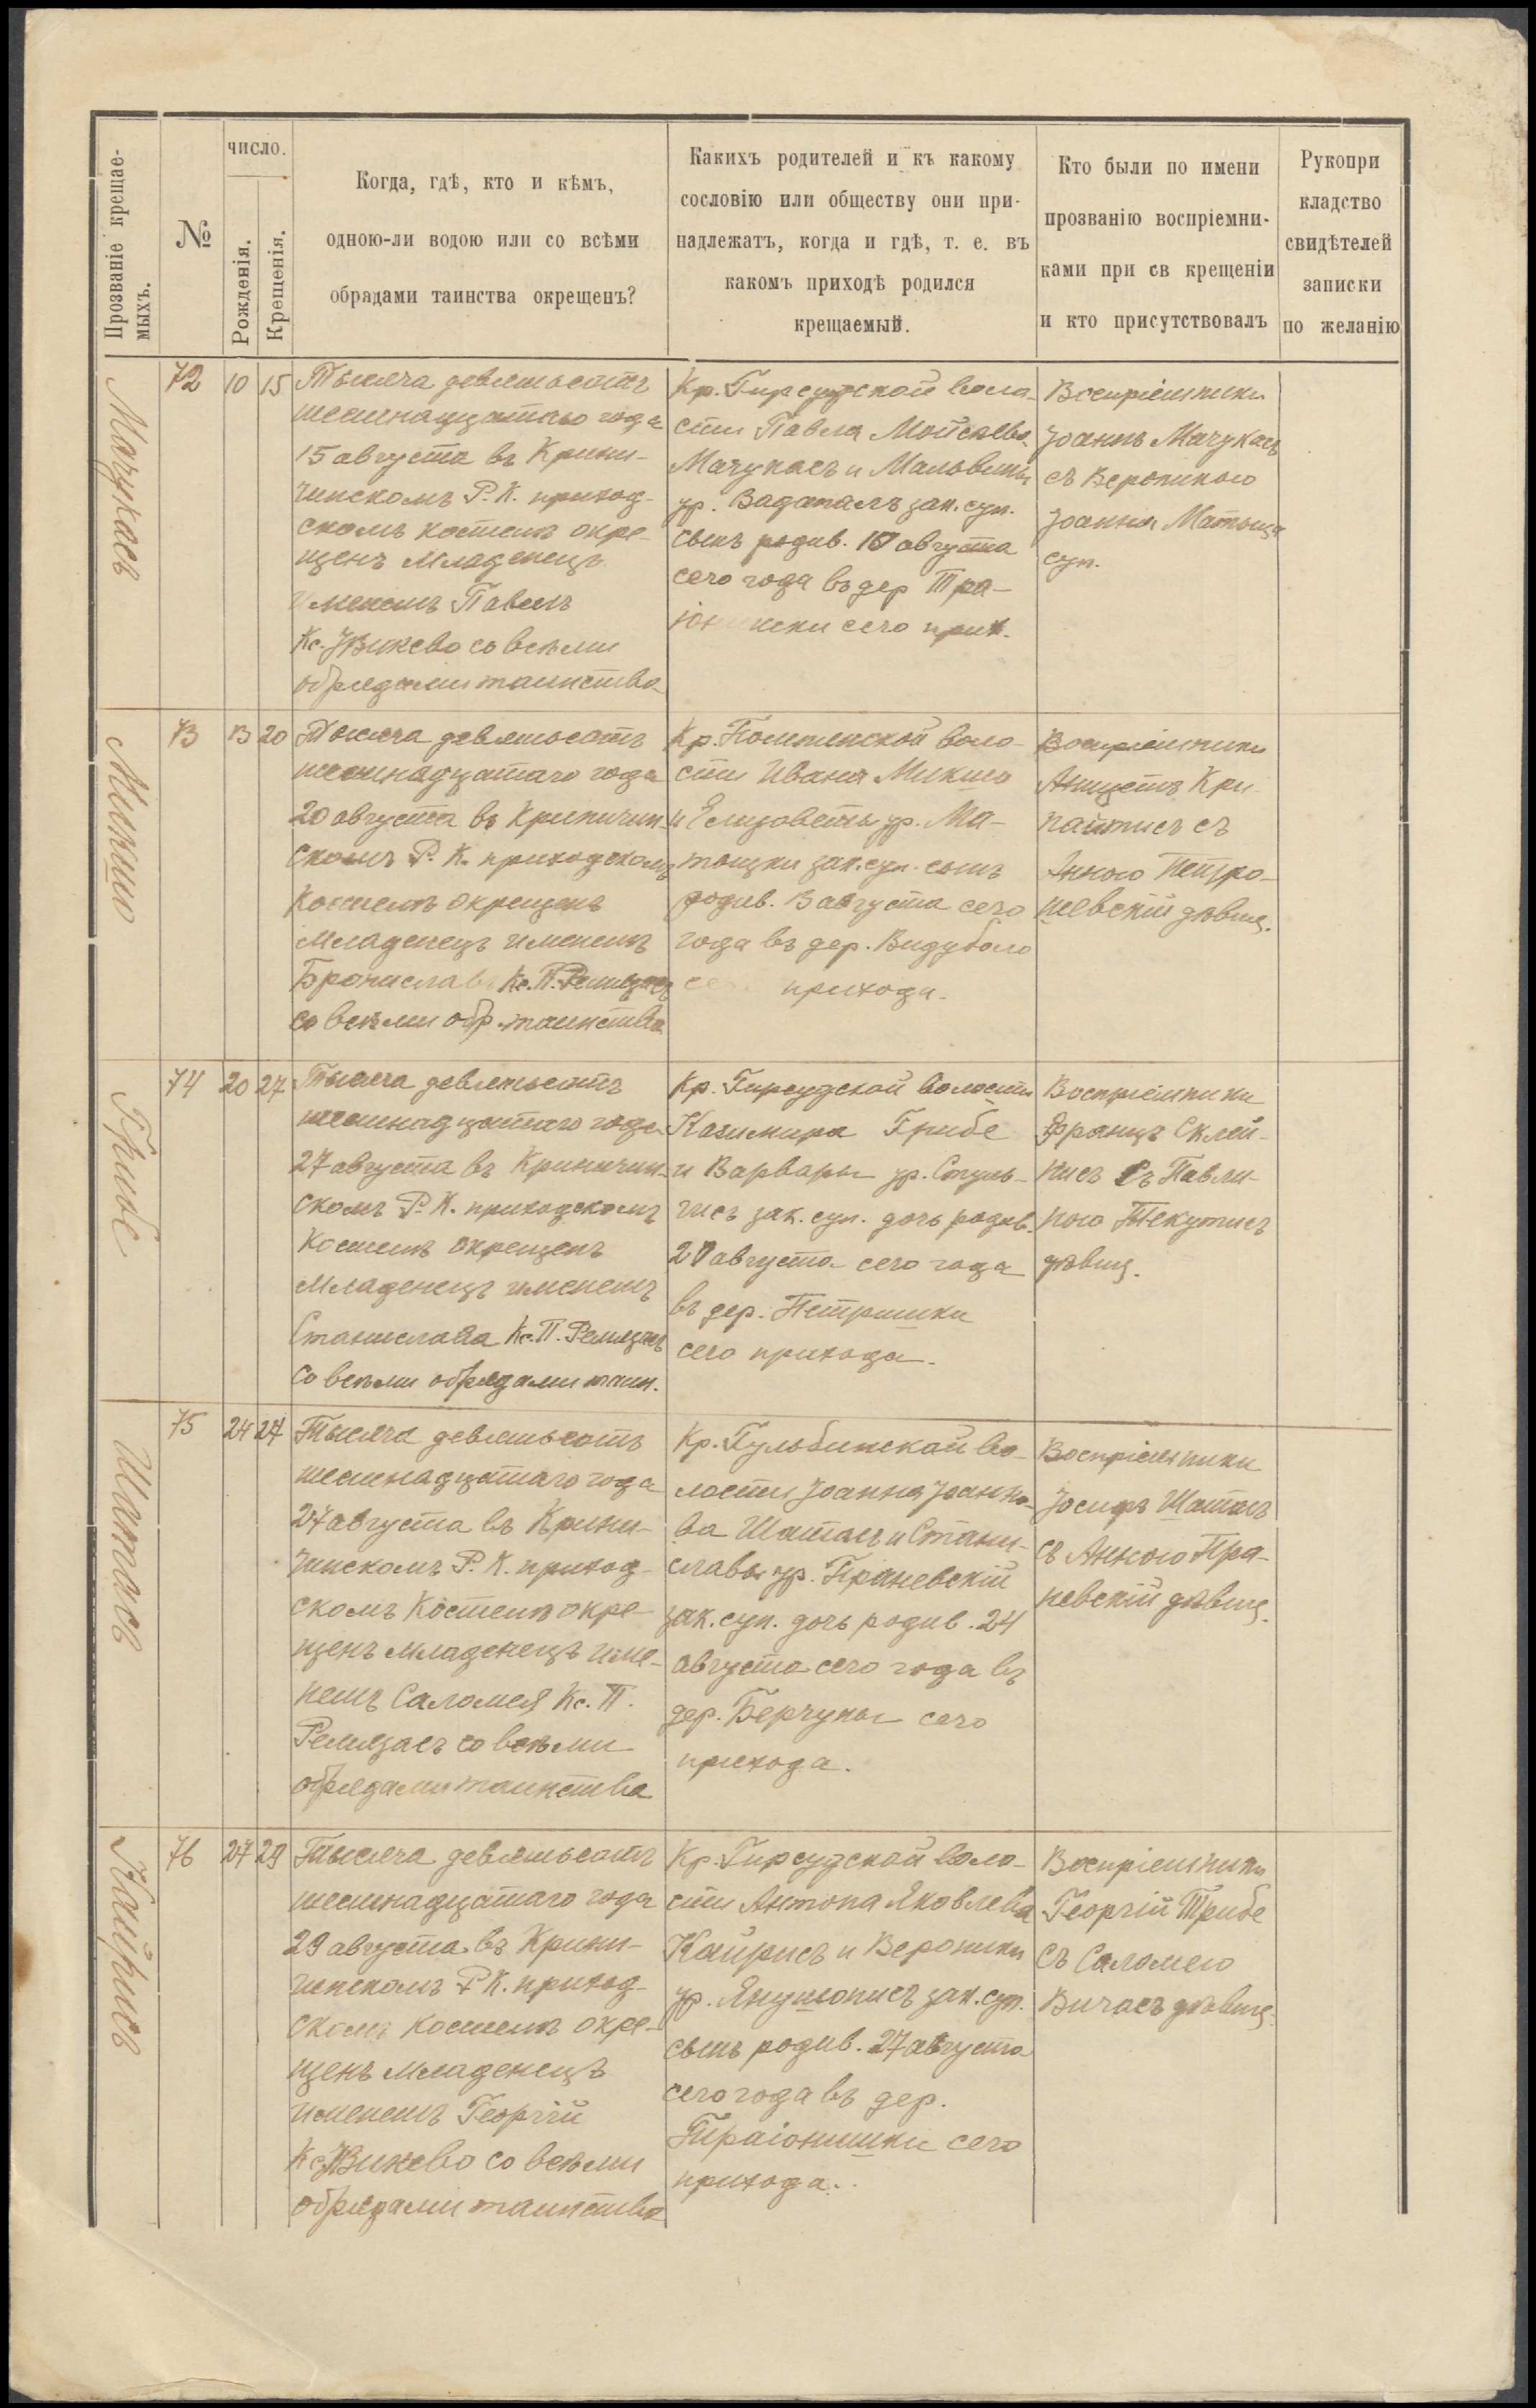 Прозваніе крещае-
мыхъ.
№
число.
Рожденія.
Крещенія.
Когда, гдѣ, кто и кѣмъ,
одною-ли водою или со всѣми
обрядами таинства окрещенъ?
Какихъ родителей и къ какому
сословію или обществу они при-
надлежатъ, когда и гдѣ, т. е. въ
какомъ приходѣ родился
крещаемый.
Кто были по имени
прозванію воспріемни-
ками при св крещеніи
и кто присутствовалъ
Рукопри
кладство
свидѣтелей
записки
по желанію
Мачукасъ
72
10
15
Тысяча девятьсотъ
шестнадцатаго года
15 августа въ Крини-
чинскомъ Р. К. приход-
скомъ костелѣ окре-
щенъ младенецъ
именемъ Павелъ
Кс. со всѣми
обрядами таинства
Кр. Гирсудской воло-
сти Павла
Мачукасъ и Мальвины
ур. зак. суп.
сынъ родив. 10 августа
сего года въ дер
сего прих.
Воспріемники
Іоаннъ Мачукасъ
съ Вероникою
Іоанна
суп.
Микшо
73
13
20
Тысяча девятьсотъ
шестнадцатаго года
20 августа въ Криничин-
скомъ Р. К. приходскомъ
костелѣ окрещенъ
младенецъ именемъ
Брониславъ Кс. П. Ремизасъ
со всѣми обр. таинства
Кр. воло-
сти Ивана Микшо
и Елизаветы ур. Ма-
зак. суп. сынъ
родив. 13 августа сего
года въ дер. Видуболо
прихода.
Воспріемники
съ
Анною Петро-
шевскій дѣвиц.
Грибе
74
20
27
Тысяча девятьсотъ
шестнадцатаго года
27 августа въ Криничин-
скомъ Р. К. приходскомъ
костелѣ окрещенъ
младенецъ именемъ
Станислава Кс. П. Ремизасъ
со всѣми обрядами таин.
Кр. Гирсудской волости
Казимира Грибе
и Варвары ур. Стуль-
гисъ зак. суп. дочь родив.
20 августа сего года
въ дер. Петришки
сего прихода.
Воспріемники
Францъ Склей-
нисъ съ Павли-
ною Текутисъ
дѣвиц.
Шатасъ
75
24
27
Тысяча девятьсотъ
шестнадцатаго года
27 августа въ Крини-
чинскомъ Р. К. приход-
скомъ костелѣ окре-
щенъ младенецъ име-
немъ Саломея Кс. П.
Ремизасъ со всѣми
обрядами таинства
Кр. Гульбинской во-
лости Іоанна Іоанно-
ва Шатасъ и Стани-
славы ур. Праневскій
зак. суп. дочь родив. 24
августа сего года въ
дер. Берчуны сего
прихода.
Воспріемники
Іосифъ Шатасъ
съ Анною Пра-
невскій дѣвиц.
Кайрисъ
76
27
29
Тысяча девятьсотъ
шестнадцатаго года
29 августа въ Крини-
чинскомъ Р К. приход-
скомъ костелѣ окре-
щенъ младенецъ
именемъ Георгій
Кс. со всѣми
обрядами таинства
Кр. Гирсудской воло-
сти Антона Яковлева
Кайрисъ и Вероники
ур. Янушонисъ зак. суп.
сынъ родив. 27 августа
сего года въ дер.
сего
прихода.
Воспріемники
Георгій Грибе
съ Саломею
Вичасъ дѣвиц.